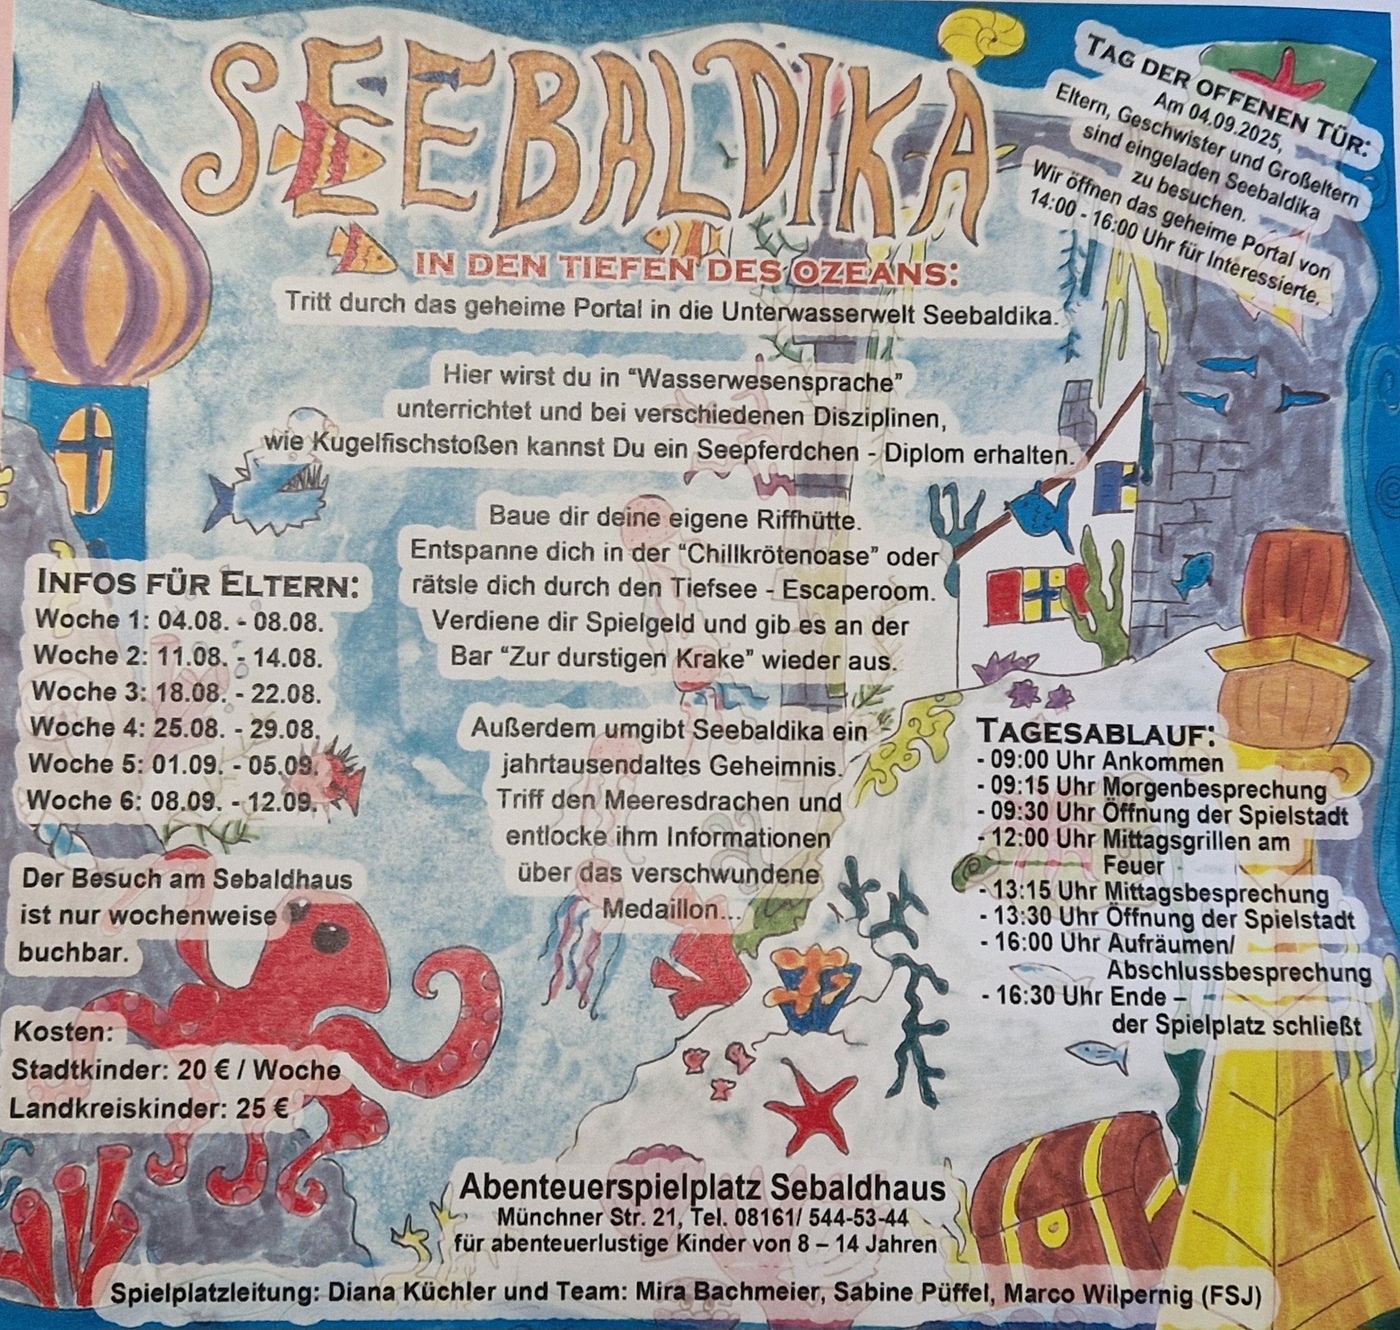 SEEBALDIKA
IN DEN TIEFEN DES OZEANS:
Tritt durch das geheime Portal in die Unterwasserwelt Seebaldika.
TAG DER OFFENEN TÜR:
Am 04.09.2025,
Eltern, Geschwister und Großeltern
sind eingeladen Seebaldika
zu besuchen.
Wir öffnen das geheime Portal von
14:00 - 16:00 Uhr für Interessierte.
Hier wirst du in “Wasserwesensprache”
unterrichtet und bei verschiedenen Disziplinen,
wie Kugelfischstoßen kannst Du ein Seepferdchen - Diplom erhalten.
Baue dir deine eigene Riffhütte.
Entspanne dich in der “Chillkrötenoase” oder
rätsle dich durch den Tiefsee - Escaperoom.
Verdiene dir Spielgeld und gib es an der
Bar “Zur durstigen Krake” wieder aus.
Außerdem umgibt Seebaldika ein
jahrtausendaltes Geheimnis.
Triff den Meeresdrachen und
entlocke ihm Informationen
über das verschwundene
Medaillon...
INFOS FÜR ELTERN:
Woche 1: 04.08. - 08.08.
Woche 2: 11.08. - 14.08.
Woche 3: 18.08. - 22.08.
Woche 4: 25.08. - 29.08.
Woche 5: 01.09. - 05.09.
Woche 6: 08.09. - 12.09.
Der Besuch am Sebaldhaus
ist nur wochenweise
buchbar.
Kosten:
Stadtkinder: 20 € / Woche
Landkreiskinder: 25 €
TAGESABLAUF:
- 09:00 Uhr Ankommen
- 09:15 Uhr Morgenbesprechung
- 09:30 Uhr Öffnung der Spielstadt
- 12:00 Uhr Mittagsgrillen am
Feuer
- 13:15 Uhr Mittagsbesprechung
- 13:30 Uhr Öffnung der Spielstadt
- 16:00 Uhr Aufräumen/
Abschlussbesprechung
- 16:30 Uhr Ende –
der Spielplatz schließt
Abenteuerspielplatz Sebaldhaus
Münchner Str. 21, Tel. 08161/ 544-53-44
für abenteuerlustige Kinder von 8 – 14 Jahren
Spielplatzleitung: Diana Küchler und Team: Mira Bachmeier, Sabine Püffel, Marco Wilpernig (FSJ)